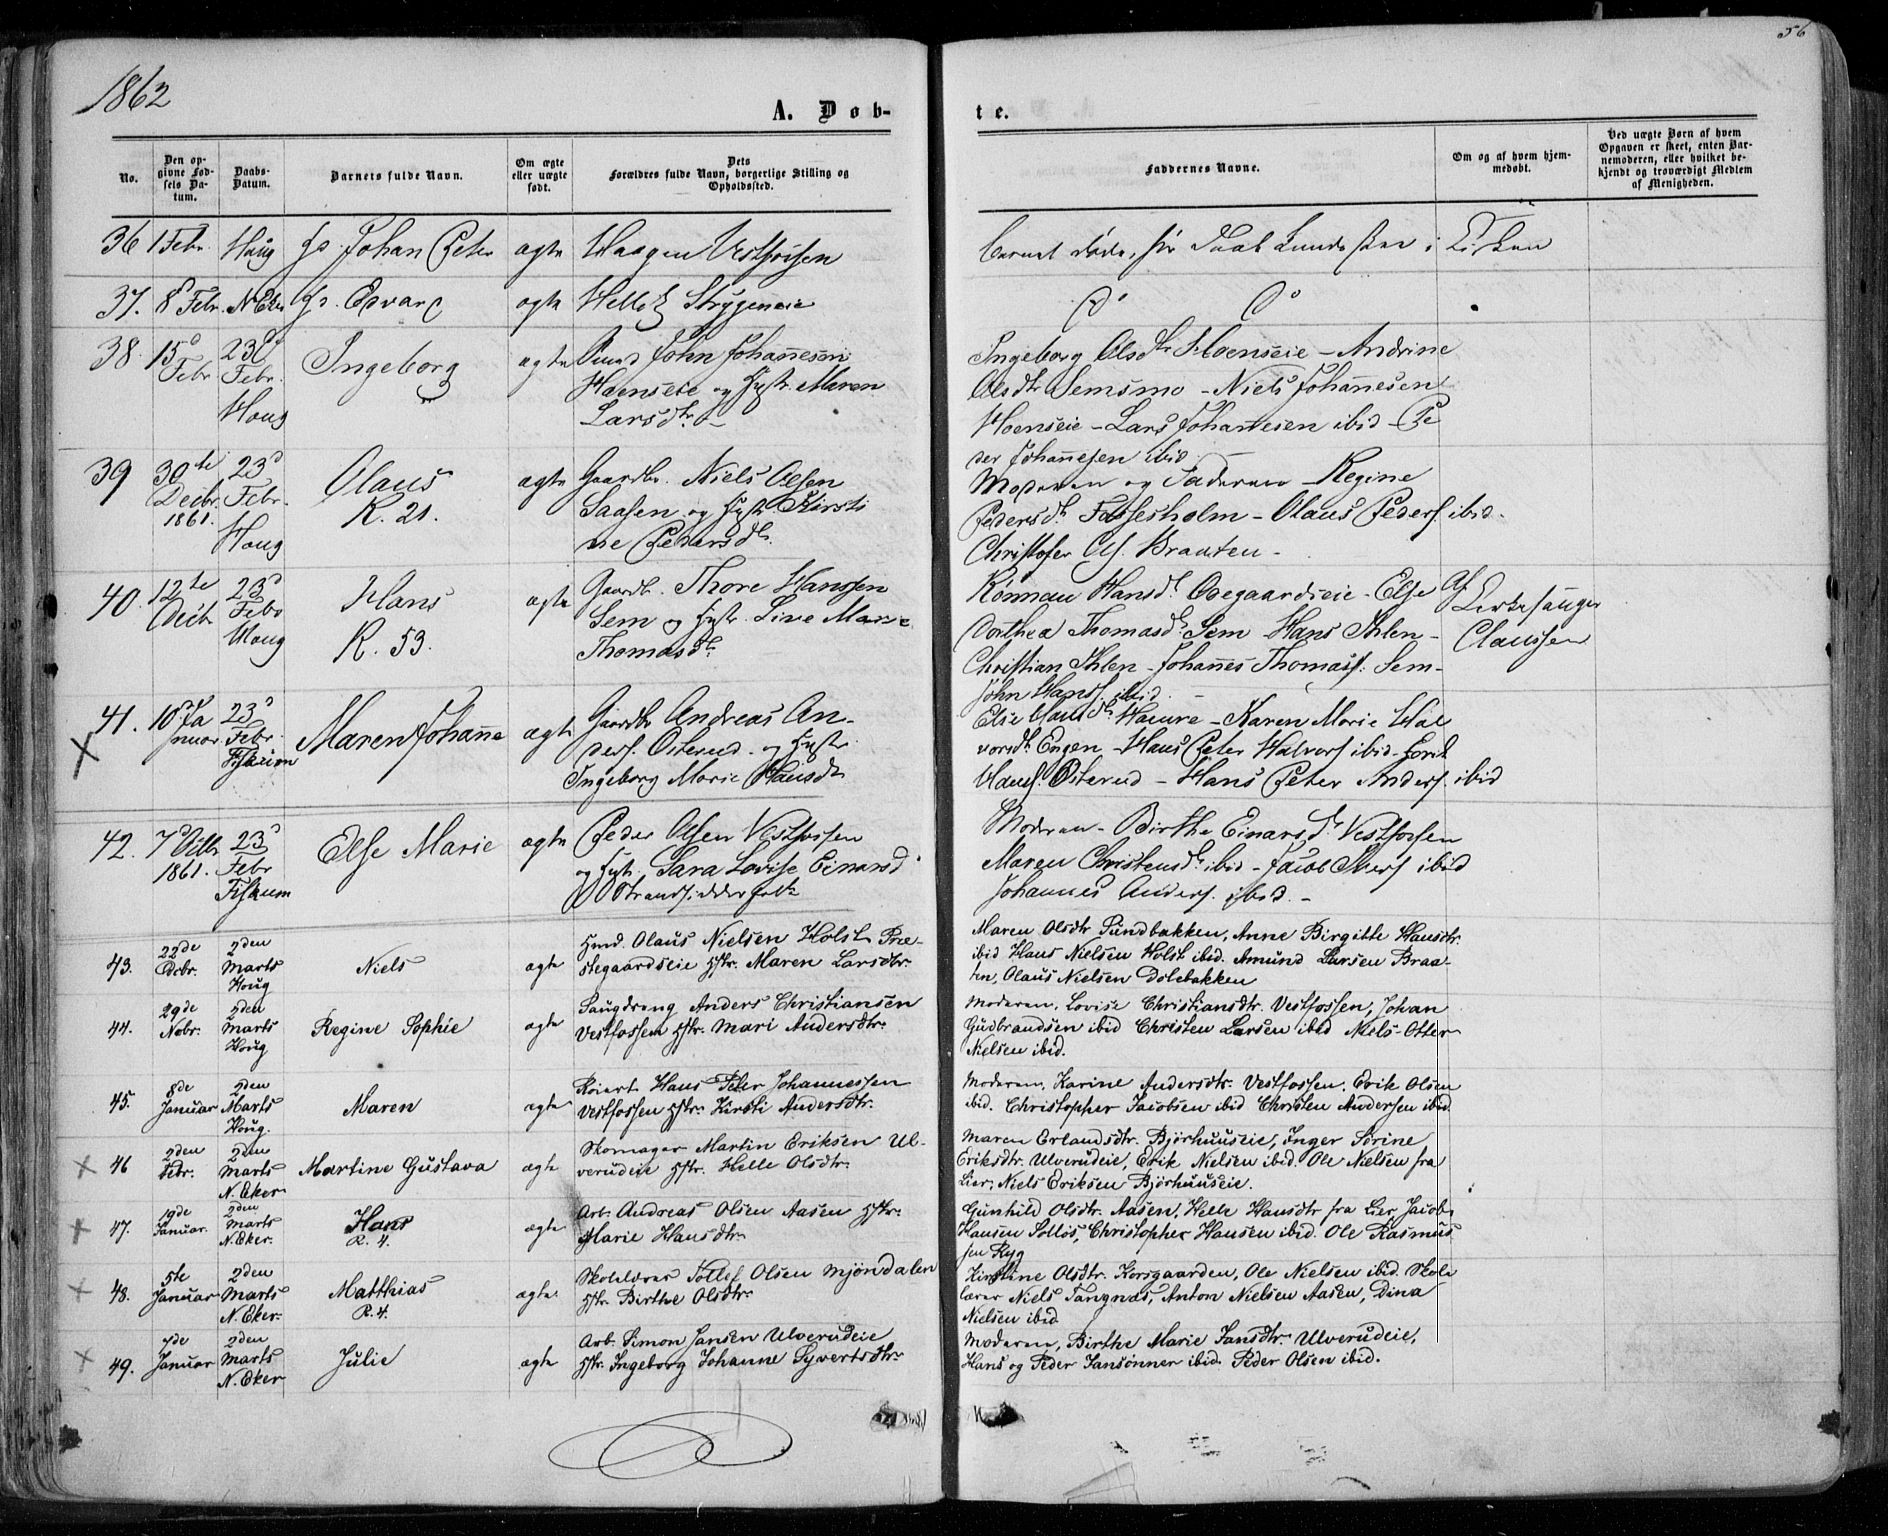 56
1862
A. Døb-
te.
No.
Den op-
givne Fød-
sels Da-
tum.
Daabs-
Datum.
Barnets fulde Navn.
Om ægte
eller uægte
født.
Dets
Forældres fulde Navn, borgerlige Stilling og
Opholdssted.
Faddernes Navne.
Om og af hvem hjem-
medøbt.
Ved uægte Børn af hvem
Opgaven er skeet, enten Bar-
nemoderen, eller hvilket be-
kjendt og troværdigt Medlem
af Menigheden.
36 1 Febr. Houg Johan Peter ægte Haagen Vestfossen
Barnet døde, før Daab kunde skee i Kirken
37. 8 Febr. N. Eker ægte Helle
Do Do
38. 15d Febr 23d Febr. Houg Ingeborg ægte
John Johannesen
Hoenseie og Hustr. Maren
Larsdtr.
Ingeborg Olsdtr Hoenseie – Andrine
Olsdtr Semsmo – Niels Johannesen
Hoenseie – Lars Johannesen ibid – Pe
der Johannesen ibid
39 30te Decbr. 1861. 23d Febr. Houg Olaus K. 21. ægte
Gaardbr. Niels Olsen
Saasen og Hustr Kirsti
ne Pedersdtr.
Moderen og Faderen – Regine
Pedersdtr Fossesholm – Olaus Peders. ibid.
Christofer Ols. Braaten –
40. 12te Decbr 23d Febr Houg Hans K. 53. ægte
Gaardb. Thore Hanssen
Sem og Hustr. Live Marie
Thomasdtr.
Rønnau Hansdtr Ovegaardseie – Else
Dorthea Thomasdtr Sem – Hans Ihlen –
Christian Ihlen – Johannes Thomass. Sem –
John Hanss. ibid. –
Af
Kirkesanger
Claussen
41. 10d Januar 23d Febr. Fiskum Maren Johanne ægte
Gaardbr Andreas An-
ders. Østerud og Hustr.
Ingeborg Marie Hansdtr
Else Hansdtr Hamre – Karen Marie Hal
vorsdtr Engen – Hans Peter Halvors. ibid –
Hans. Østerud – Hans Peter Anders. ibid
42. 7d 1861. 23d Febr Fiskum Else Marie ægte
Peder Olsen Vestfossen
og Hustr. Sara Lovise Einarsd
Strandsidderfolk
Moderen – Birthe Einarsdtr Vestfossen
Maren Christensdtr ibid – Jacob ibid
Johannes Anders. ibid. –
43. 22de Decbr. 2den Marts Houg Niels ægte
Hmd. Olaus Nielsen Holst Præ-
stegaardseie Hstr. Maren Larsdtr.
Maren Olsdtr Sundbakken, Anne Birgitte Hansdtr.
ibid Hans Nielsen Holst ibid. Amund Larsen Braa-
ten, Olaus Nielsen Dolebakken
44. 29de Nobr. 2den Marts Houg Regine Sophie ægte
Saugdreng Anders Christiansen
Vestfossen Hstr. Mari Andersdtr.
Moderen, Lovise Christiansdtr. Vestfossen, Johan
Gudbrandsen ibid Christen Larsen ibid Niels Otter
Nielsen ibid.
45. 8de Januar 2den Marts Houg. Maren ægte
Røiert Hans Peter Johannessen
Vestfossen Hstr. Kirsti Andersdtr.
Moderen, Karine Andersdtr. Vestfossen. Erik Olsen
ibid. Christopher Jacobsen ibid Christen Andersen ibid.
46 2den Febr. 2den Marts N. Eker Martine Gustava ægte
Skomager Martin Eriksen Ul-
verudeie Hstr. Helle Olsdtr.
Maren Erlandsdtr. Bjørhuuseie, Inger Sørine
Eriksdtr. Ulverudeie, Erik Nielsen ibid. Ole Nielsen fra
Lier, Niels Eriksen Bjørhuuseie.
47. 19de Januar. 2den Marts N. Eker. Hans R. 4. ægte
Arb. Andreas Olsen Aasen Hstr.
Marie Hansdtr.
Gunhild Olsdtr. Aasen, Helle Hansdtr fra Lier Jacob
Hansen Solløs, Christopher Hansen ibid. Ole Rasmus
sen Ryg
48. 5te Januar 2den Marts N. Eker. Matthias R. 4. ægte.
Skolelærer Tollef Olsen Mjøndalen
Hstr. Birthe Olsdtr.
Kirstine Olsdtr. Korsgaarden, Ole Nielsen ibid. Skole
lærer Niels Tangnæs, Anton Nielsen Aasen, Dina
Nielsen ibid
49. 7de Januar 2den Marts N. Eker Julie ægte
Arb. Simon Jansen Ulverudeie
Hstr. Ingeborg Johanne Syvertsdtr.
Moderen, Birthe Marie Jansdtr. Ulverudeie,
Hans og Peder Jansønner ibid. Peder Olsen ibid.